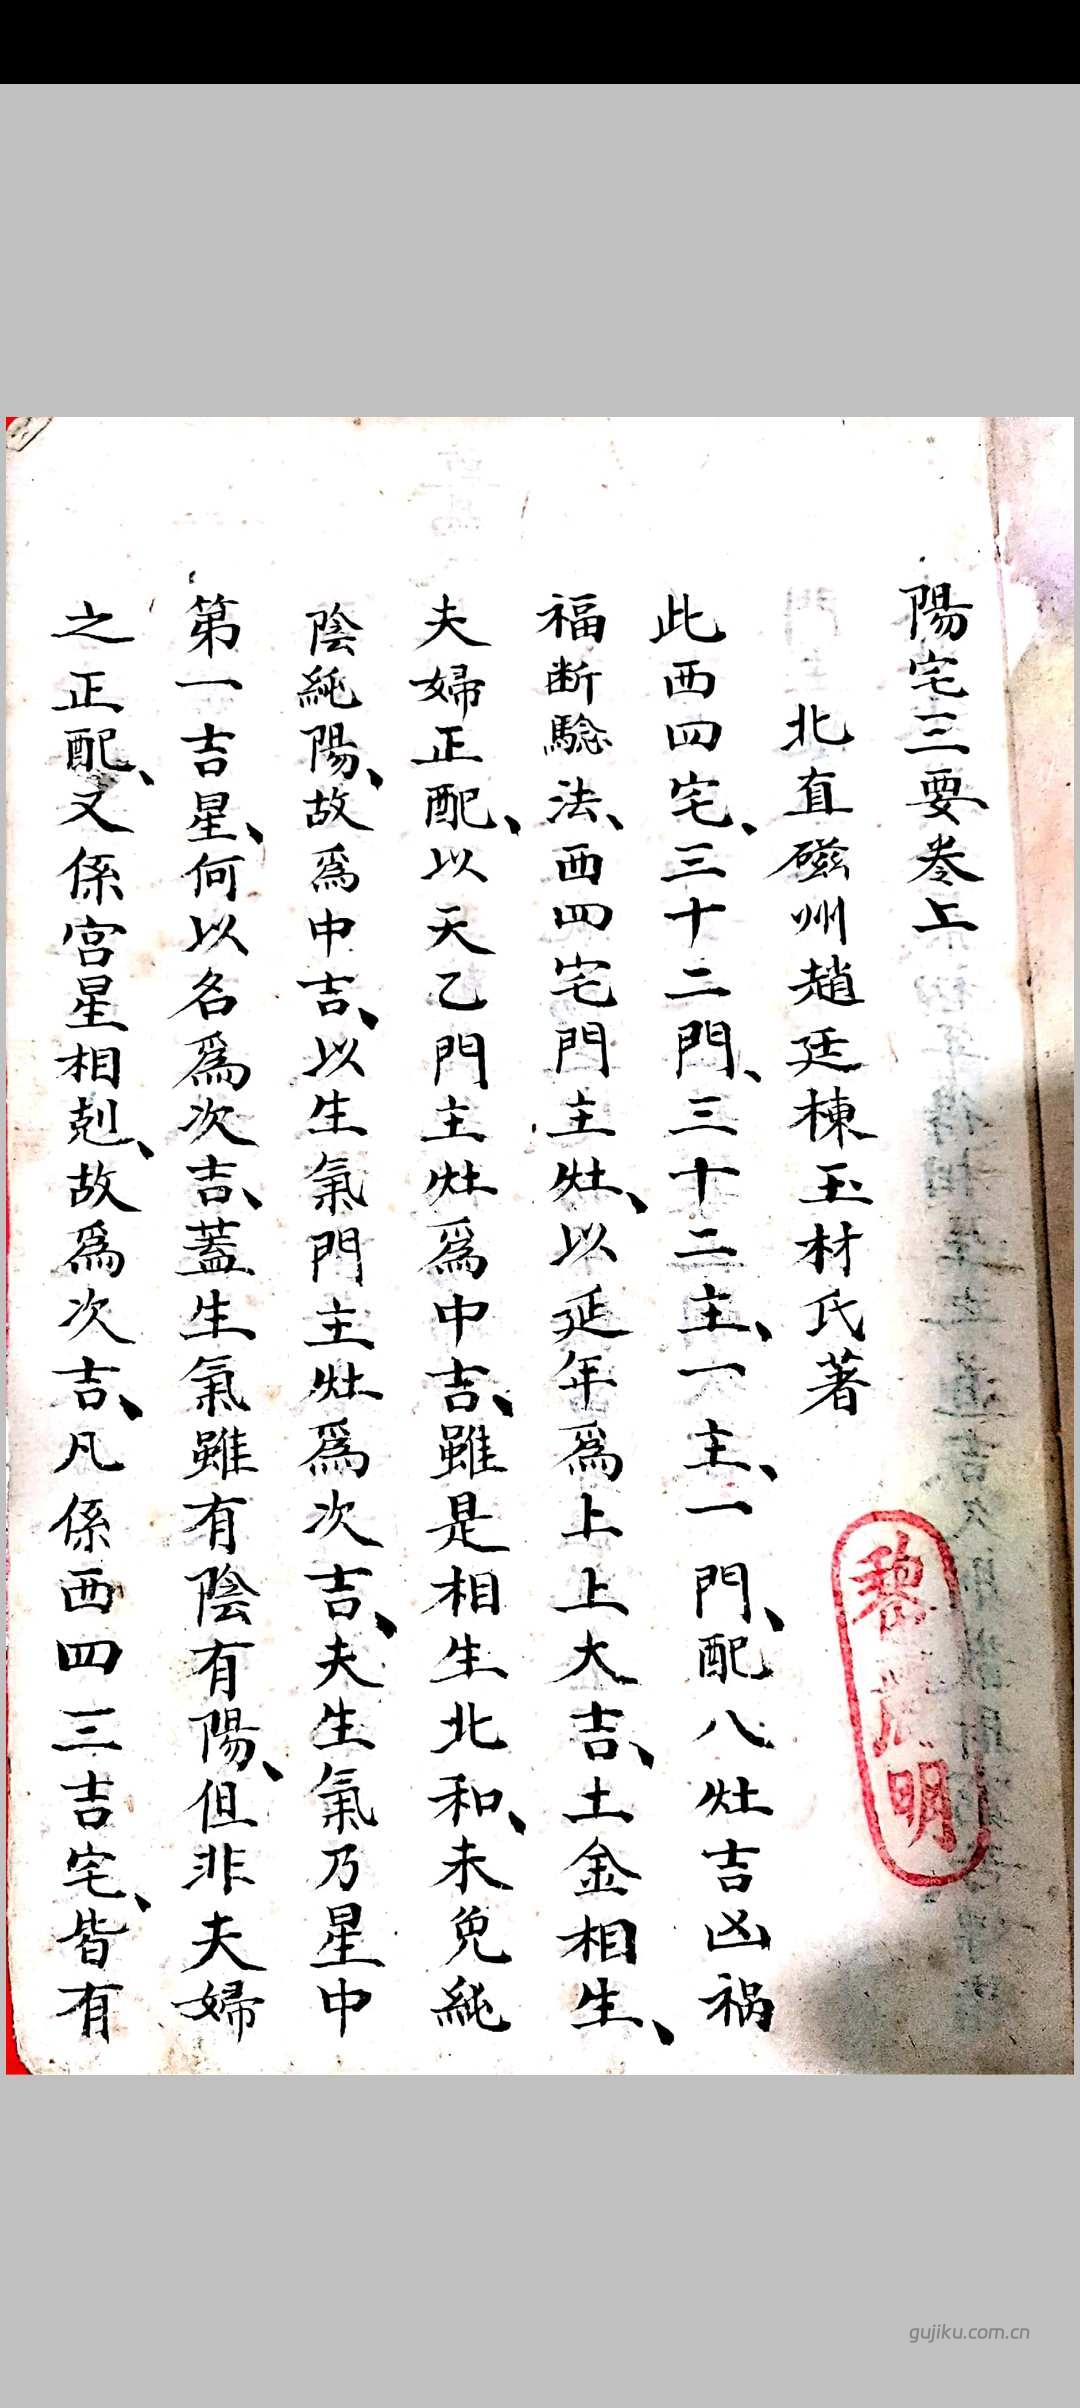 陽宅三要卷上
北直磁州趙廷棟玉材氏著
此西四宅、三十二門、三十二主、一主、一門、配八灶吉凶禍
福断驗法、西四宅門主灶、以延年爲上上大吉、土金相生、
夫婦正配、以天乙門主灶爲中吉、雖是相生北和、未免純
陰純陽、故爲中吉、以生氣門主灶爲次吉、夫生氣乃星中
第一吉星、何以名爲次吉、蓋生氣雖有陰有陽、但非夫婦
之正配、又係宮星相剋、故爲次吉、凡係西四三吉宅、皆有
黎
明
gujiku.com.cn